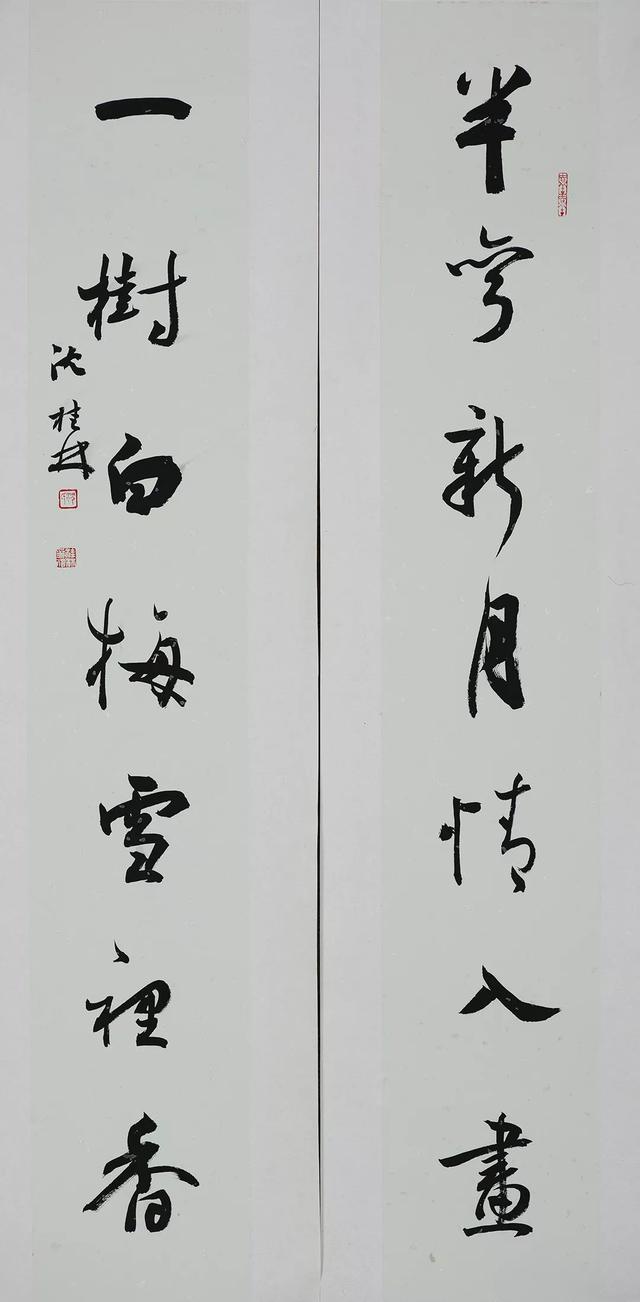 半弯新月情入畫
一樹白梅雪裡香
沈桂林